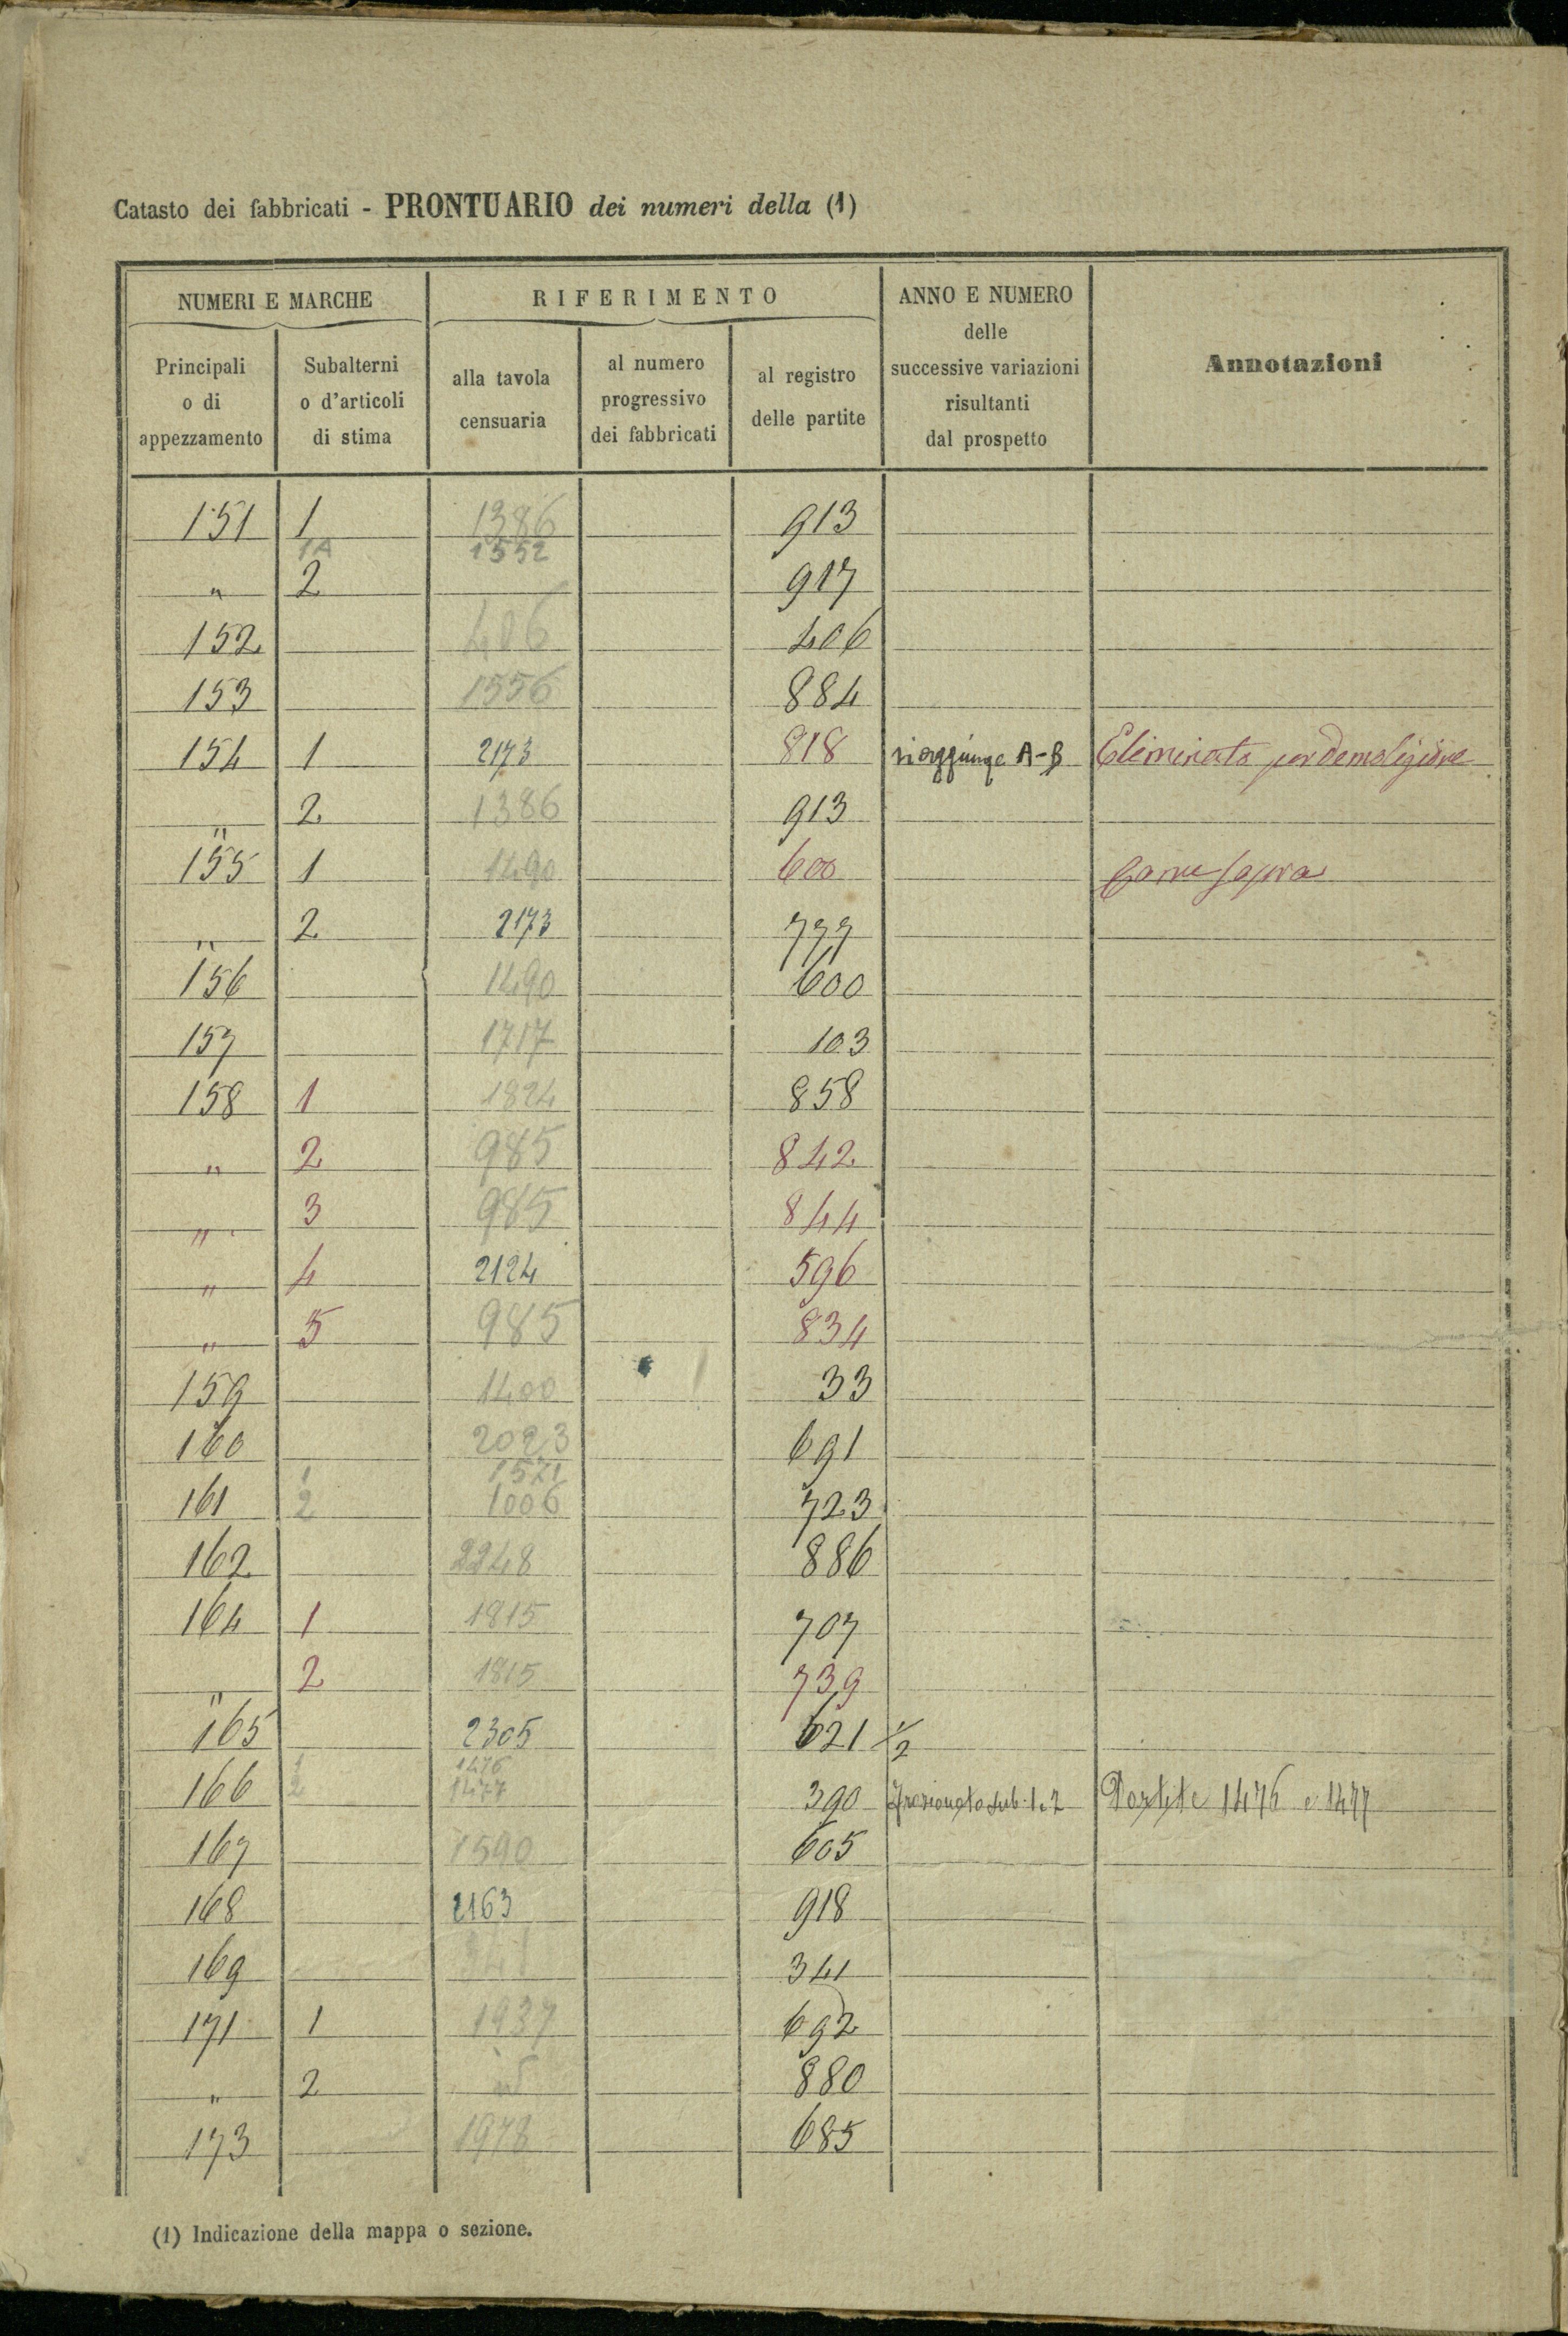 Catasto dei fabbricati - PRONTUARIO dei numeri della (1)
NUMERI E MARCHE
RIFERIMENTO
ANNO E NUMERO
delle
successive variazioni
risultanti
dal prospetto
Annotazioni
Principali
o di
appezzamento
Subalterni
o d'articoli
di stima
alla tavola
censuaria
al numero
progressivo
dei fabbricati
al registro
delle partite
151 1 1386 913
1A 1552
" 2 917
152 406 406
153 1556 884
154 1 2173 818 si aggiunge A-B Eliminato per demolizione
" 2 1386 913
155 1 1490 600 Come sopra
" 2 2173 777
156 1490 600
157 1717 103
158 1 1824 858
" 2 985 842
" 3 985 844
" 4 2124 596
" 5 985 834
159 1400 33
160 2023 691
1 1571
161 2 1006 723
162 2248 886
164 1 1815 707
" 2 1815 739
165 2305 621 1/2
1 1476
166 2 1477 390 frazionato sub. 1 e 2 Partite 1476 e 1477
167 1590 605
168 2163 918
169 341 341
171 1 1937 692
" 2 880
173 1978 685
(1) Indicazione della mappa o sezione.